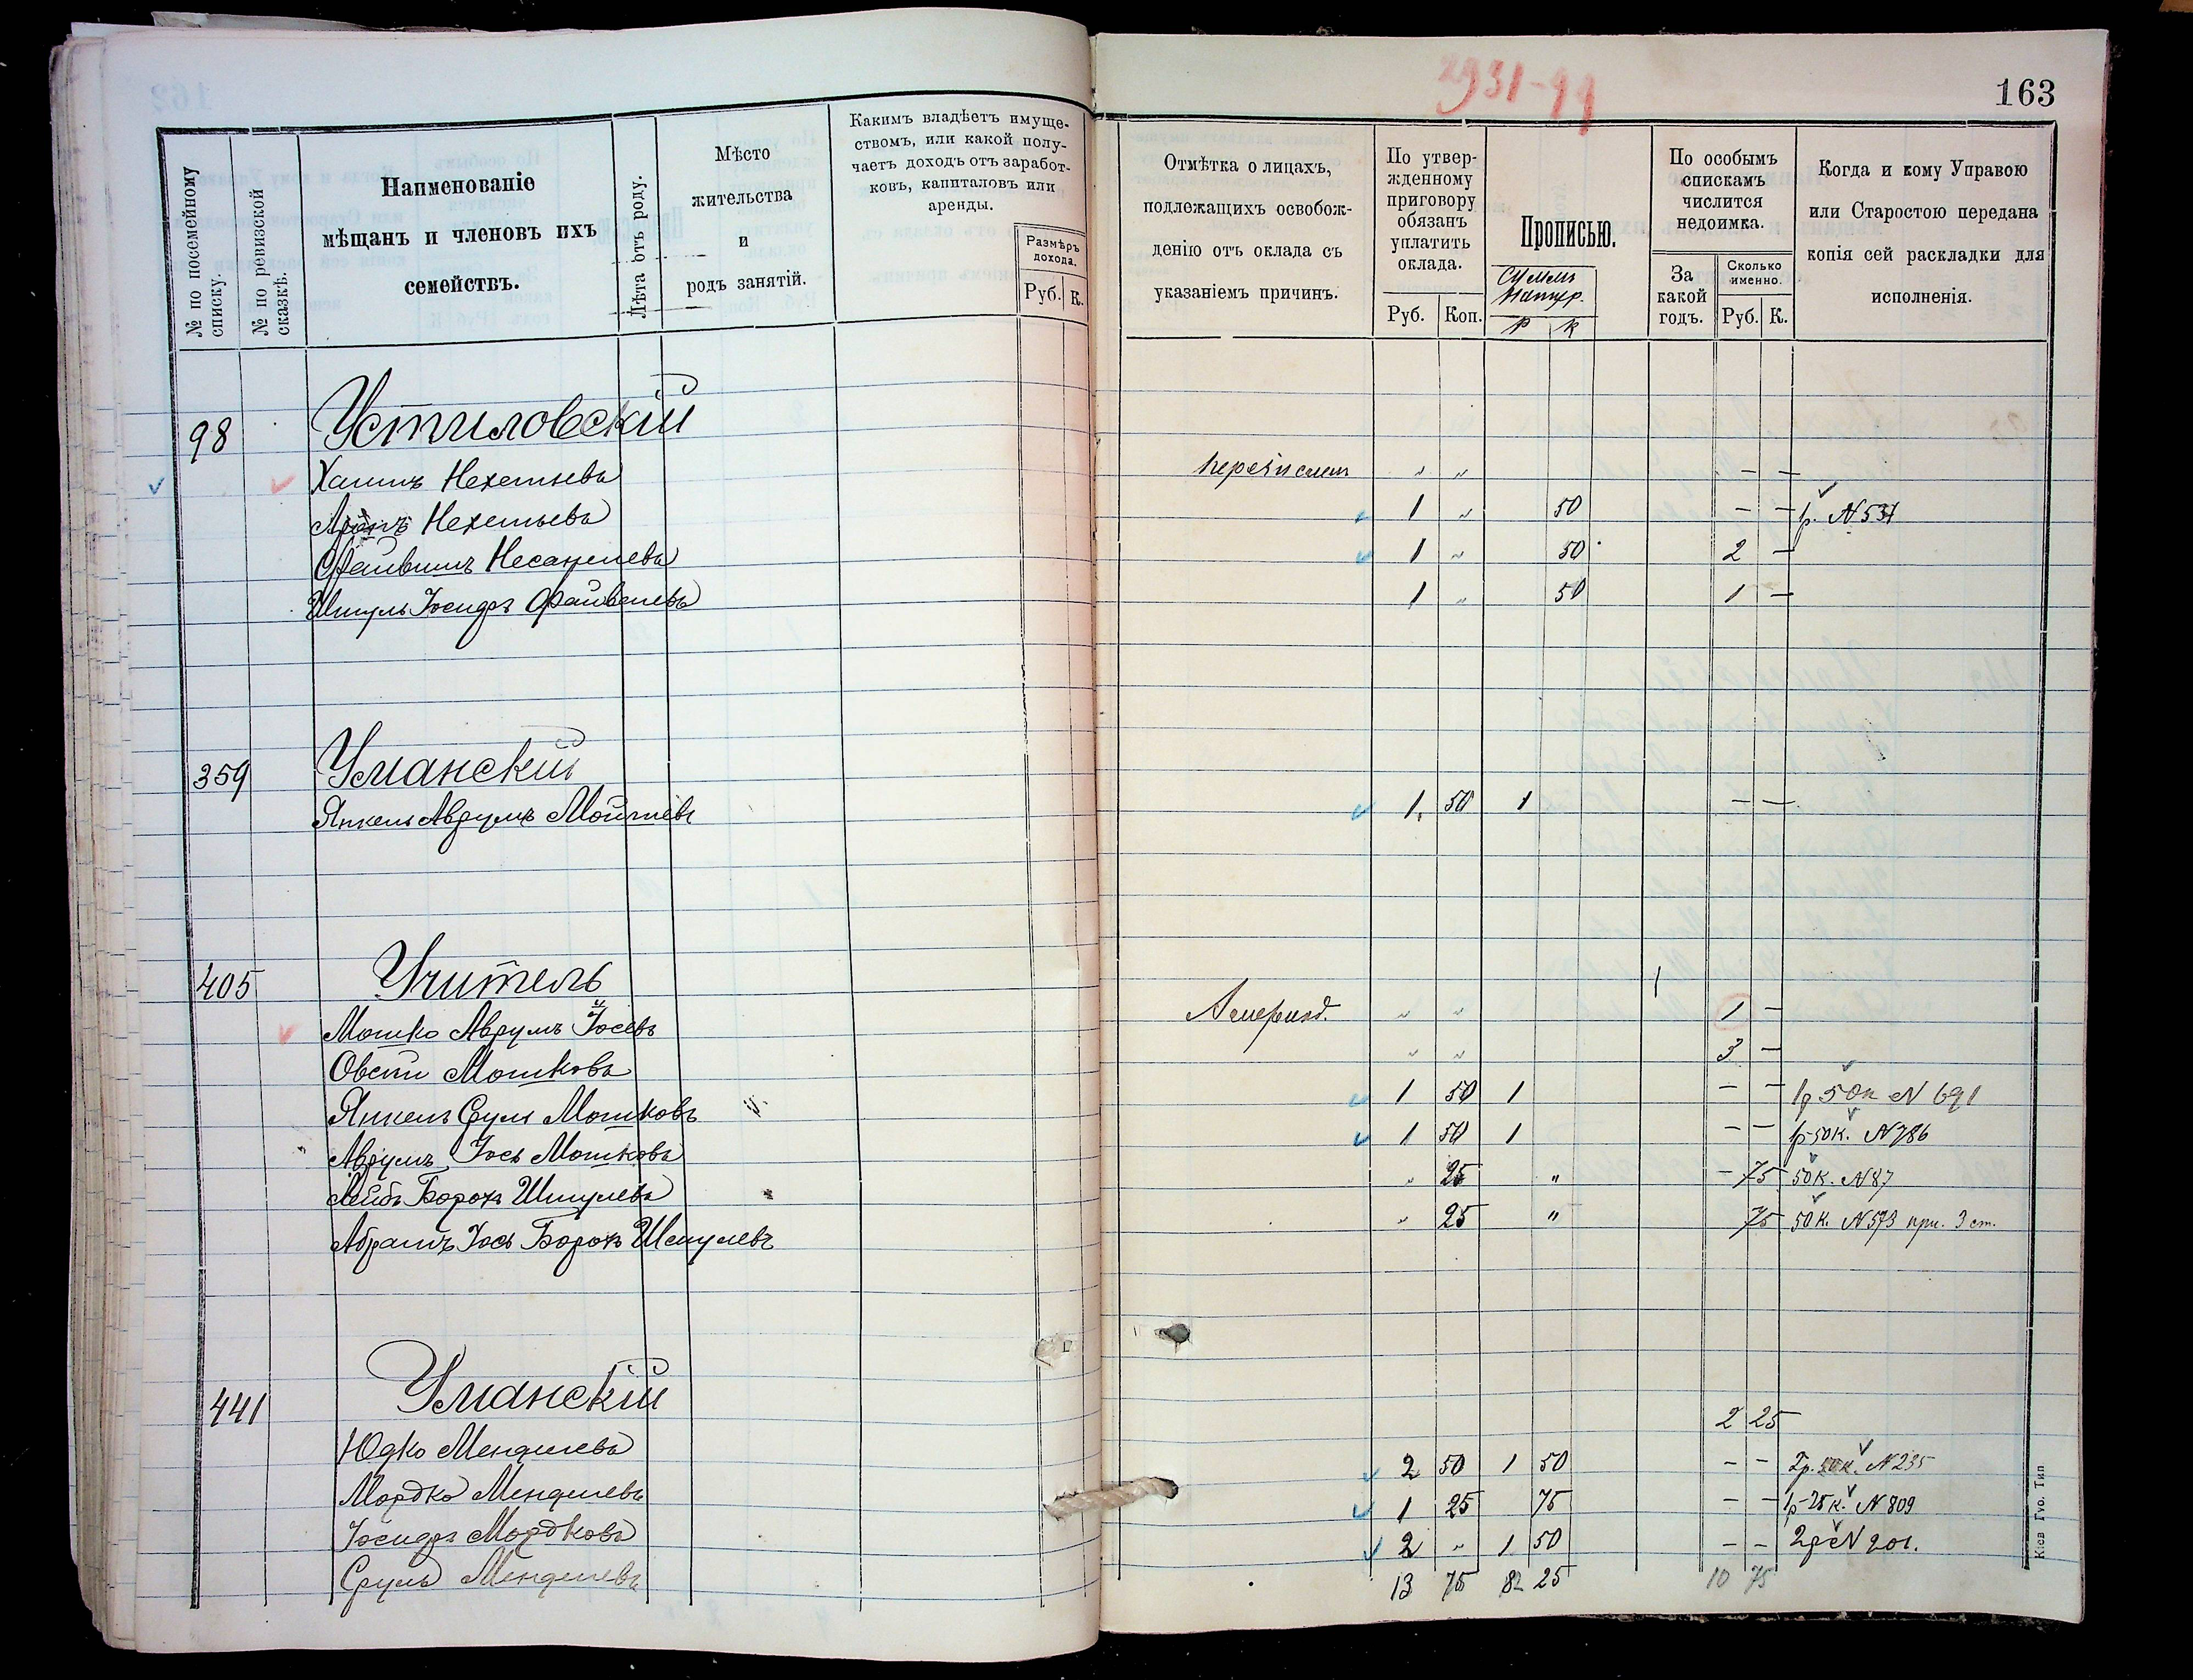 2931-99
163
№ по посемейному списку.
№ по ревизской сказкѣ.
Наименованіе
мѣщанъ и членовъ ихъ
семействъ.
Лѣта отъ роду.
Мѣсто
жительства
и
родъ занятій.
Какимъ владѣетъ имуще-
ствомъ, или какой полу-
чаетъ доходъ отъ заработ-
ковъ, капиталовъ или
аренды.
Размѣръ
дохода.
Руб. К.
Отмѣтка о лицахъ,
подлежащихъ освобож-
денію отъ оклада съ
указаніемъ причинъ.
По утвер-
жденному
приговору
обязанъ
уплатить
оклада.
Руб. Коп.
Прописью.
Р К
По особымъ
спискамъ
числится
недоимка.
За
какой
годъ.
Сколько
именно.
Руб. К.
Когда и кому Управою
или Старостою передана
копія сей раскладки для
исполненія.
98 Устиловскій
Хаимъ Нехемьевъ перечислен „ „ — —
Нехемьевъ 1 „ 50 — — 1 р. N 531
Файвишъ 1 „ 50 2 —
Шмуль Іосифъ Файвелевъ 1 „ 50 1 —
359 Уманскій
Янкель Аврумъ Мойшіевъ 1 50 1 — —
405 Учитель
Мошко Аврумъ Іосевъ „ „ 1 —
Овсій Мошковъ „ „ 3 —
Янкель Сруль Мошковъ 1 50 1 — — 1р 50к N 691
Аврумъ Іось Мошковъ 1 50 1 — — 1р-50к. N 786
Лейбъ Борохъ Шмулевъ „ 25 „ — 75 50к. N 87
Абрамъ Іось Борохъ Шмулевъ „ 25 „ 75 50к. N 593 при. 3 ст.
441 Уманскій
2 25
Юдко Менделевъ 2 50 1 50 — — 2р. 50к. N 235
Мордко Менделевъ 1 25 75 — — 1р-25к. N 809
Іосифъ Мордковъ 2 „ 1 50 — — 2р N 201.
Сруль Менделевъ
13 75 8 25 10 75
Кіев Губ. Тип